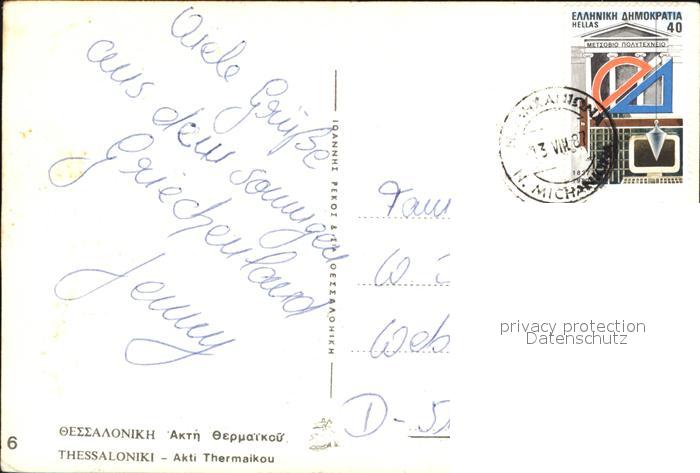 Viele Grüße
aus dem sonnigen
Griechenland
Jenny
ΙΩΑΝΝΗΣ ΡΕΚΟΣ & ΘΕΣΣΑΛΟΝΙΚΗ
ΕΛΛΗΝΙΚΗ ΔΗΜΟΚΡΑΤΙΑ
HELLAS 40
ΜΕΤΣΟΒΙΟ ΠΟΛΥΤΕΧΝΕΙΟ
13 VIII 87
N. MICHANIONA
Fam
W
Web
D-51
privacy protection
Datenschutz
6
ΘΕΣΣΑΛΟΝΙΚΗ Ἀκτή Θερμαϊκοῦ
THESSALONIKI - Akti Thermaikou